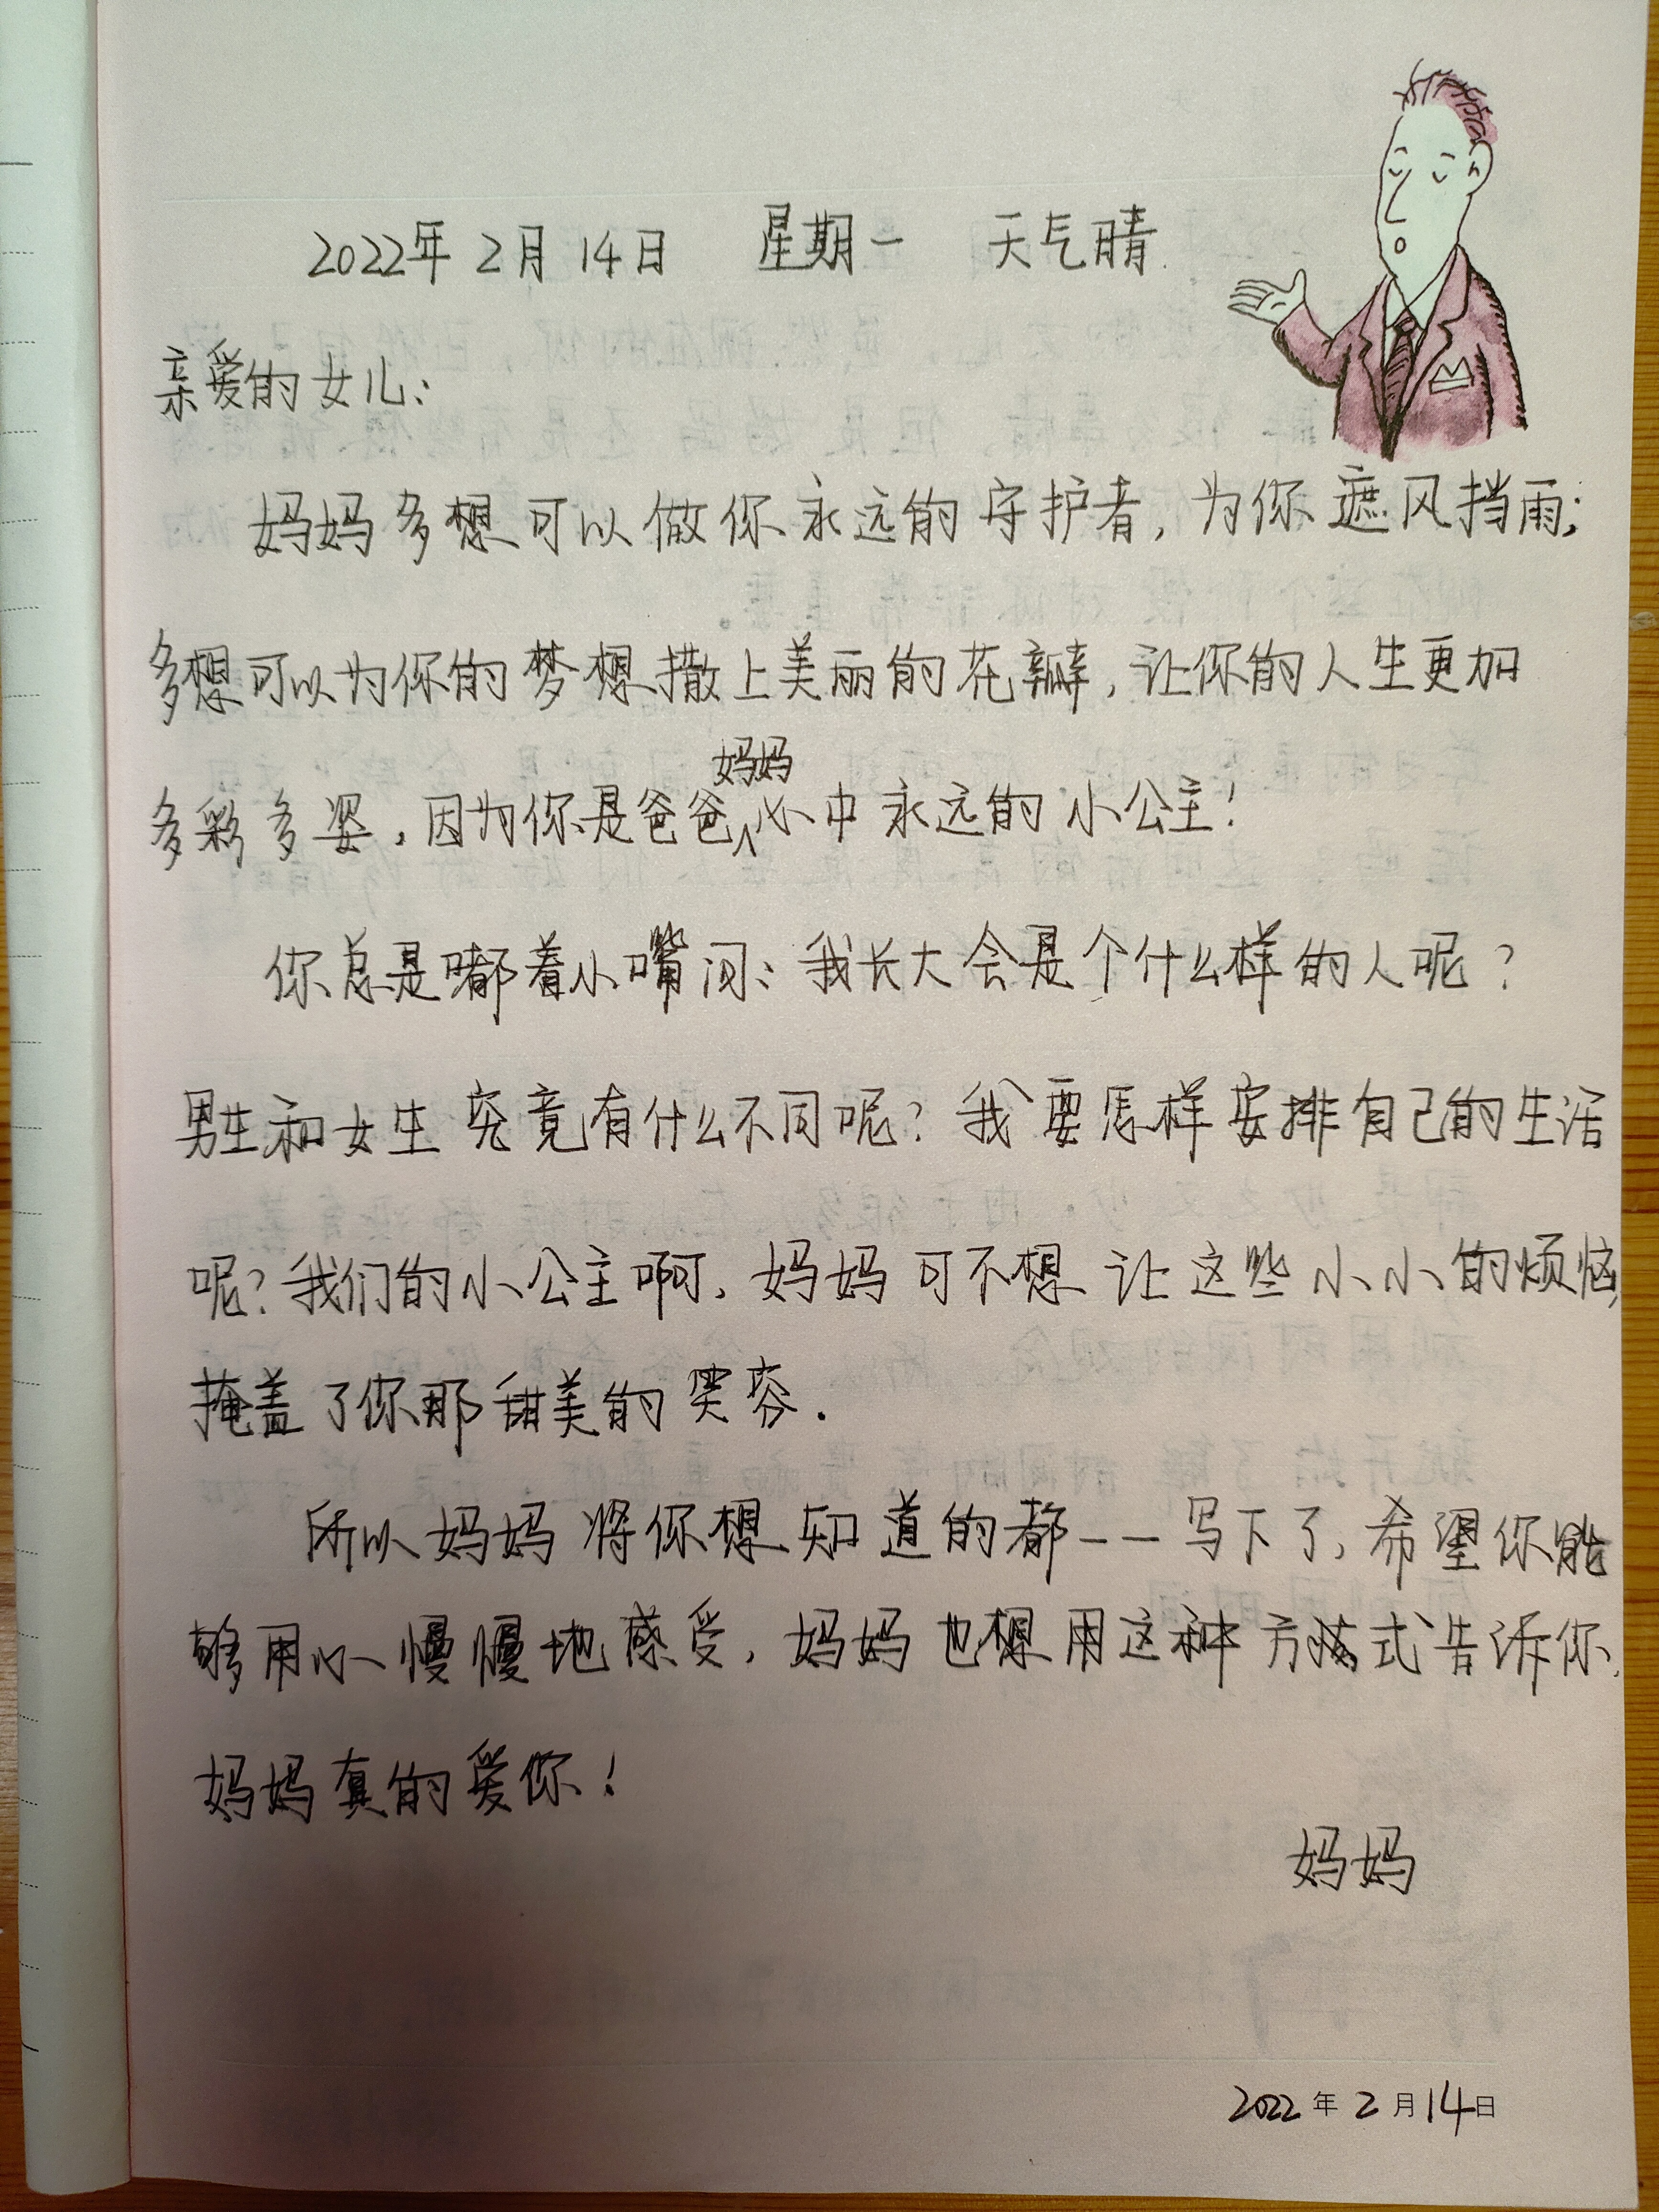 2022年2月14日 星期一 天气晴
亲爱的女儿：
妈妈多想可以做你永远的守护者，为你遮风挡雨；
多想可以为你的梦想撒上美丽的花瓣，让你的人生更加
多彩多姿，因为你是爸爸妈妈心中永远的小公主！
你总是嘟着小嘴问：我长大会是个什么样的人呢？
男生和女生究竟有什么不同呢？我要怎样安排自己的生活
呢？我们的小公主啊，妈妈可不想让这些小小的烦恼，
掩盖了你那甜美的笑容．
所以妈妈将你想知道的都一一写下了，希望你能
够用心慢慢地感受，妈妈也想用这种方式告诉你，
妈妈真的爱你！
妈妈
2022年2月14日